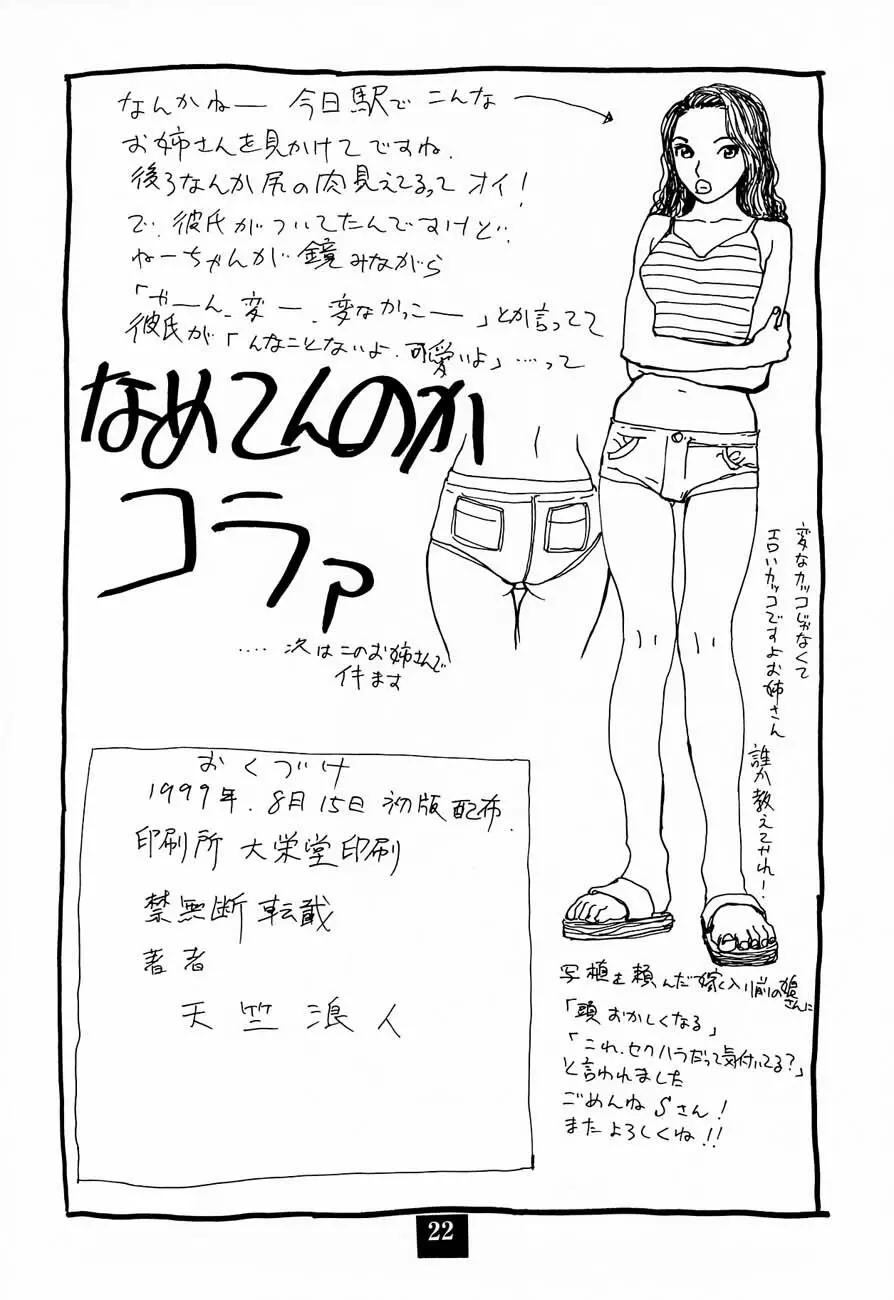 なんかねー 今日駅で こんな
お姉さんを見かけてですね、
後ろなんか尻の肉見えてるって オイ!
で、彼氏がついてたんですけど、
ねーちゃんが 鏡みながら
「やーん、変ー、変なかっこー」とか言ってて
彼氏が「んなことないよ、可愛いよ」……って
なめてんのか
コラァ
…. 次はこのお姉さんで
イキます
変なカッコじゃなくて
エロいカッコですよお姉さん
誰か教えてやれ!
おくづけ
1999年、8月15日 初版配布、
印刷所 大栄堂印刷
禁無断転載
著者
天竺浪人
写植を頼んだ嫁入り前の娘さんに
「頭おかしくなる」
「これ、セクハラだって気付いてる?」
と言われました
ごめんね Sさん!
またよろしくね!!
22